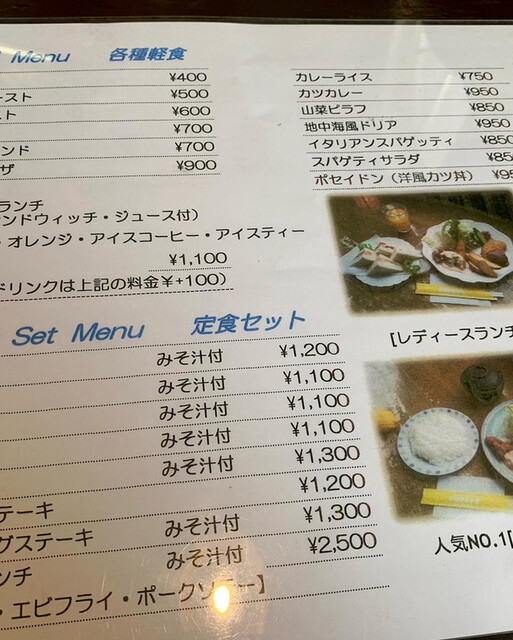 Menu 各種軽食
¥400
ースト ¥500
スト ¥600
¥700
ンド ¥700
ザ ¥900
カレーライス ¥750
カツカレー ¥950
山菜ピラフ ¥850
地中海風ドリア ¥950
イタリアンスパゲッティ ¥850
スパゲティサラダ ¥85
ポセイドン（洋風カツ丼） ¥95
ランチ
ンドウィッチ・ジュース付）
・オレンジ・アイスコーヒー・アイスティー
¥1,100
ドリンクは上記の料金¥+100）
[レディースランチ
Set Menu 定食セット
みそ汁付 ¥1,200
みそ汁付 ¥1,100
みそ汁付 ¥1,100
みそ汁付 ¥1,100
みそ汁付 ¥1,300
¥1,200
テーキ みそ汁付 ¥1,300
グステーキ みそ汁付 ¥2,500
ンチ
・エビフライ・ポークソテー】
人気NO.1[